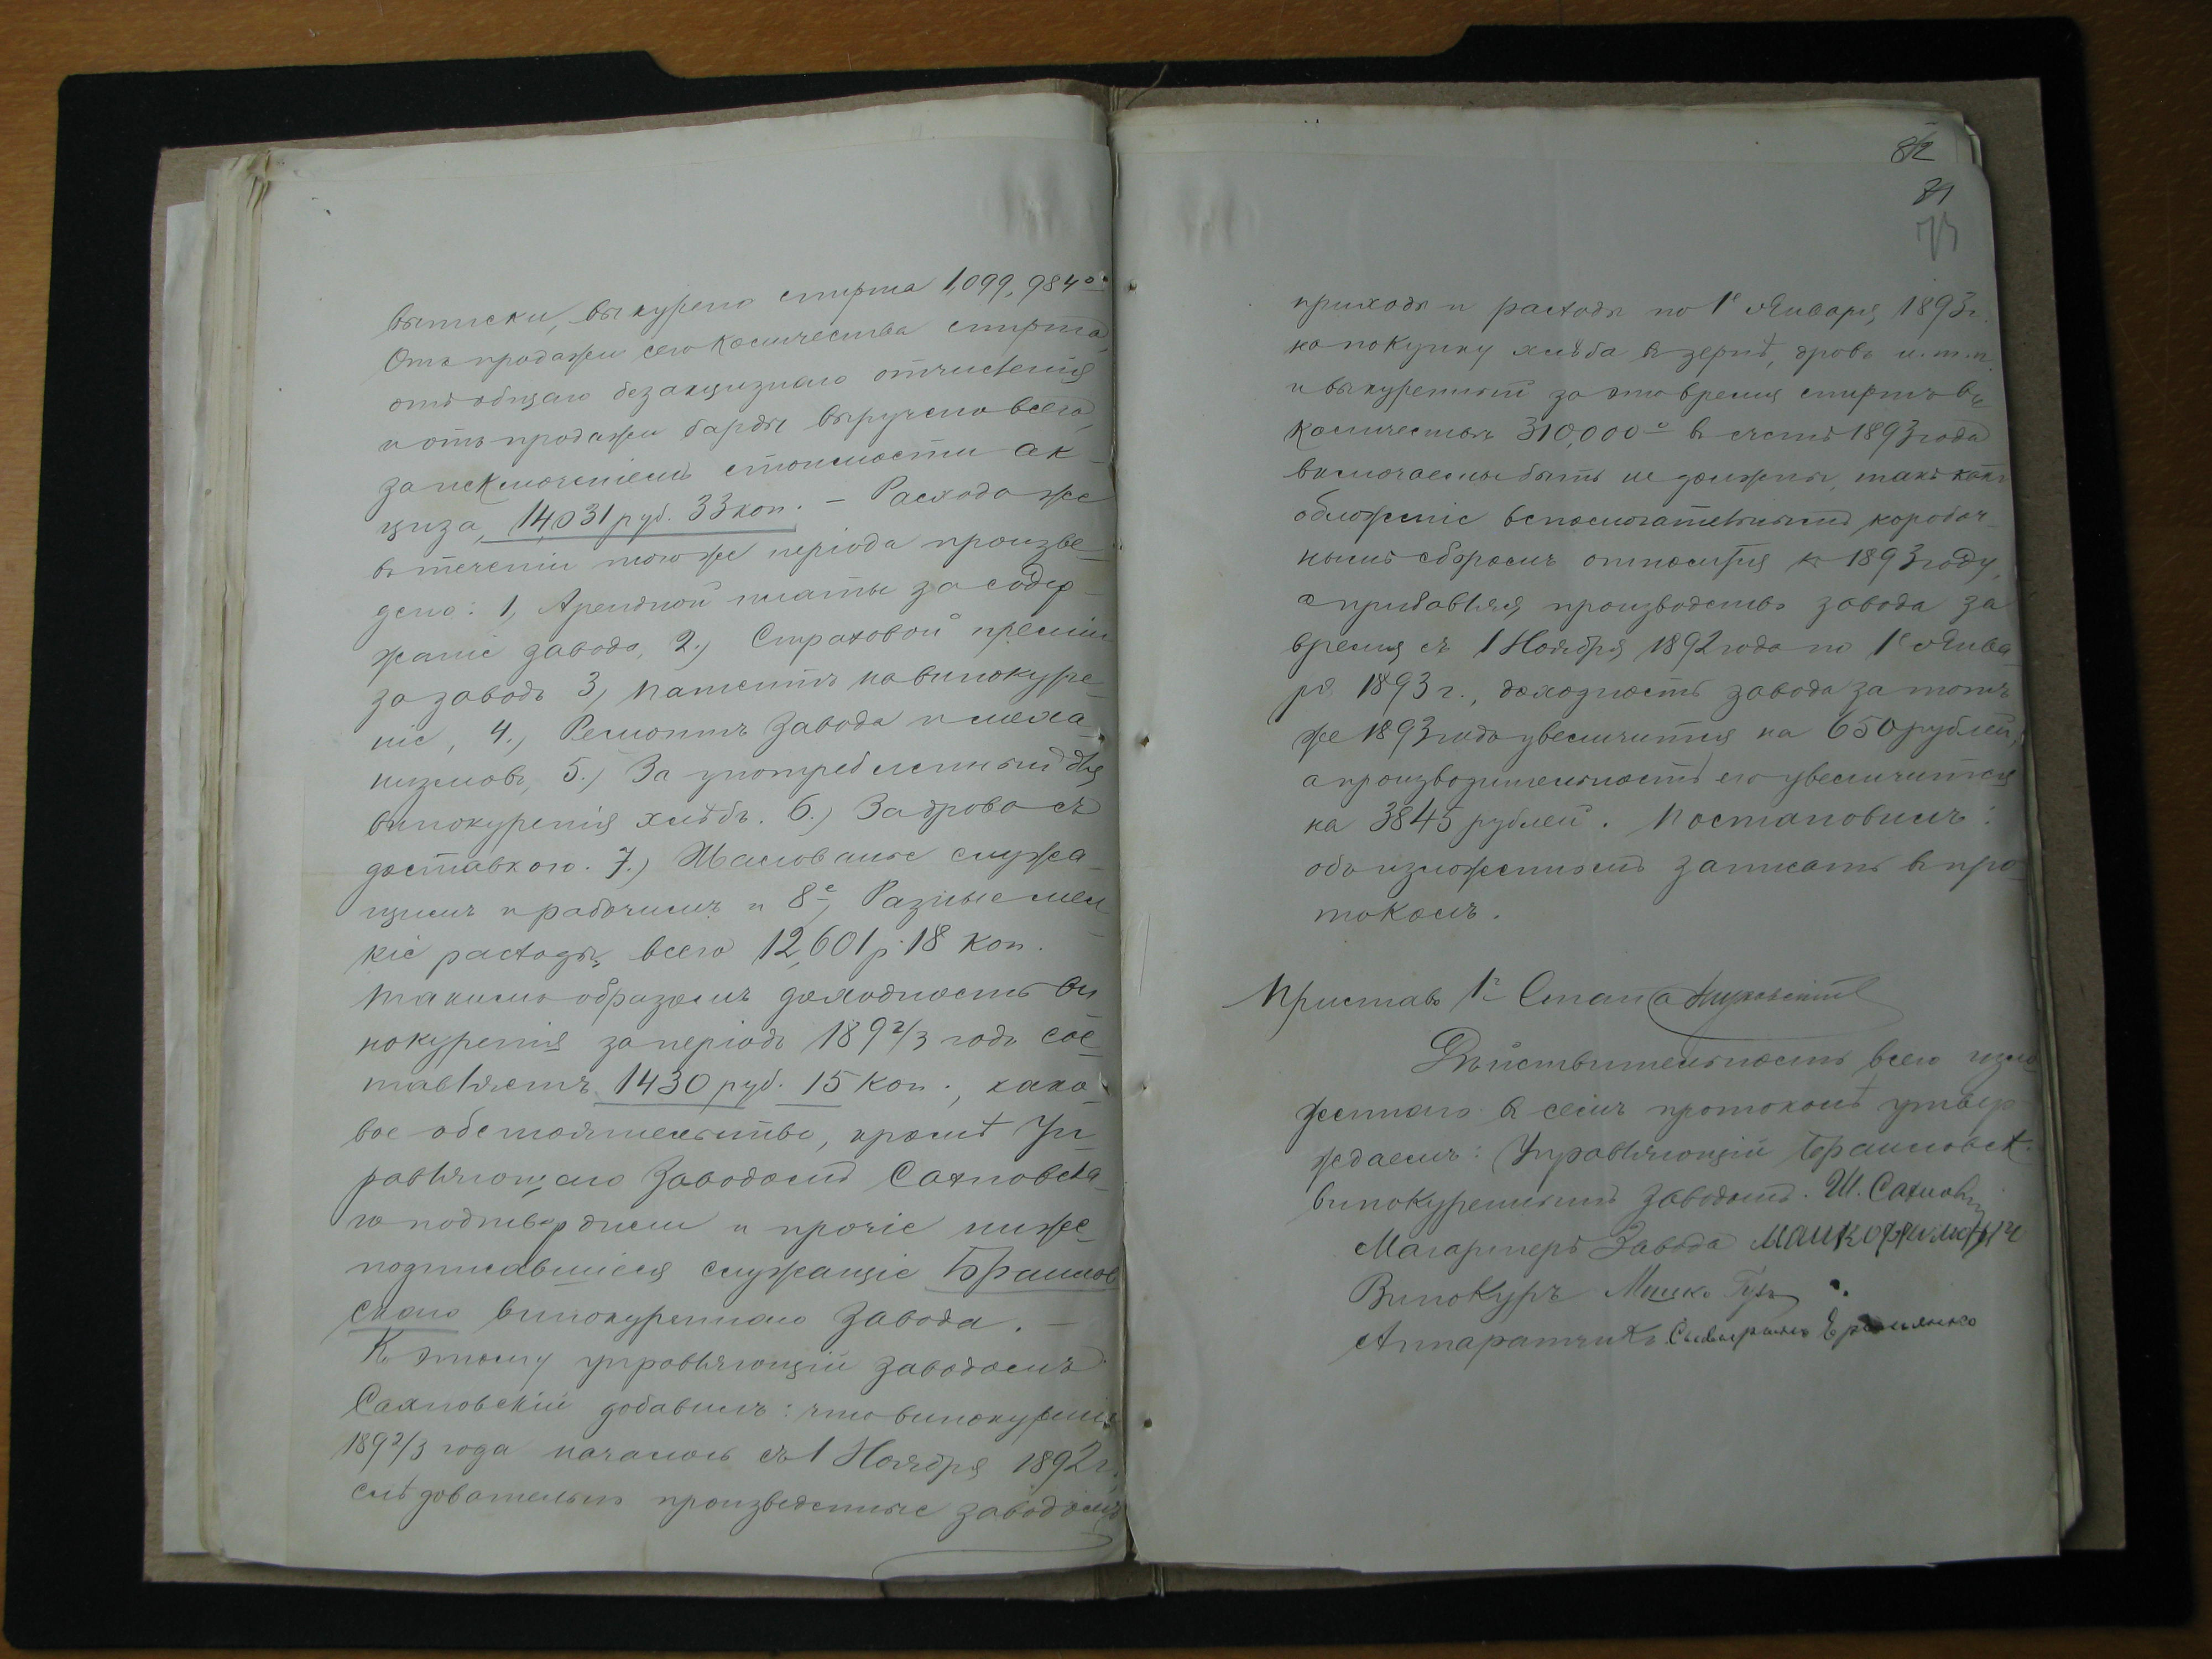 выписки, выкурено спирта 1,099,984°
Отъ продажи сего количества спирта,
отъ общаго безакцизнаго отчисленія
и отъ продажи барды выручено всего,
за исключеніемъ стоимости ак-
циза, 14,031 руб. 33 коп. – Расхода же
въ теченіи того же періода произве-
дено: 1, Арендной платы за содер-
жаніе завода, 2.) Страховой преміи
за заводъ 3, патентъ на винокуре-
ніе, 4.) Ремонтъ завода и меха-
низмовъ, 5.) За употребленный для
винокуренія хлѣбъ. 6.) За дрова съ
доставкою. 7.) Жалованье служа-
щимъ и рабочимъ и 8, Разные мел-
кіе расходы, всего 12,601 р. 18 коп.
Такимъ образомъ доходность ви-
нокуренія за періодъ 189 2/3 годъ сос-
тавляетъ 1430 руб. 15 коп., како-
вое обстоятельство, кромѣ Уп-
равляющаго заводомъ Сахновска-
го подтвердили и прочіе ниже-
подписавшіеся служащіе Браилов-
скаго винокуреннаго завода. –
Къ этому управляющій заводомъ
Сахновскій добавилъ: что винокуреніе
189 2/3 года началось съ 1 Ноября 1892 г.,
слѣдовательно произведенные заводомъ
82
71
приходы и расходы по 1е Января 1893 г.
на покупку хлѣба въ зернѣ, дровъ и.т.п.
и выкуренный за это время спиртъ въ
количествѣ 310,000° въ счетъ 1893 года
включаемы быть не должны, такъ какъ
обложеніе вспомогательнымъ короб[оч]-
нымъ сборомъ относится къ 1893 году,
а прибавляя производство завода за
время съ 1 Ноября 1892 года по 1е Янва-
ря 1893 г., доходность завода за тотъ
же 1893 годъ увеличится на 650 рублей,
а производительность его увеличится
на 3845 рублей. Постановилъ:
объ изложенномъ записать въ про-
токолъ.
Приставъ 1го Стана
Дѣйствительность всего изло-
женнаго въ семъ протоколѣ утвер-
ждаемъ: Управляющій Браиловск.
винокуреннымъ заводомъ. Ш. Сахновскій
Магазинеръ Завода
Винокуръ Мошко
Аппаратчикъ